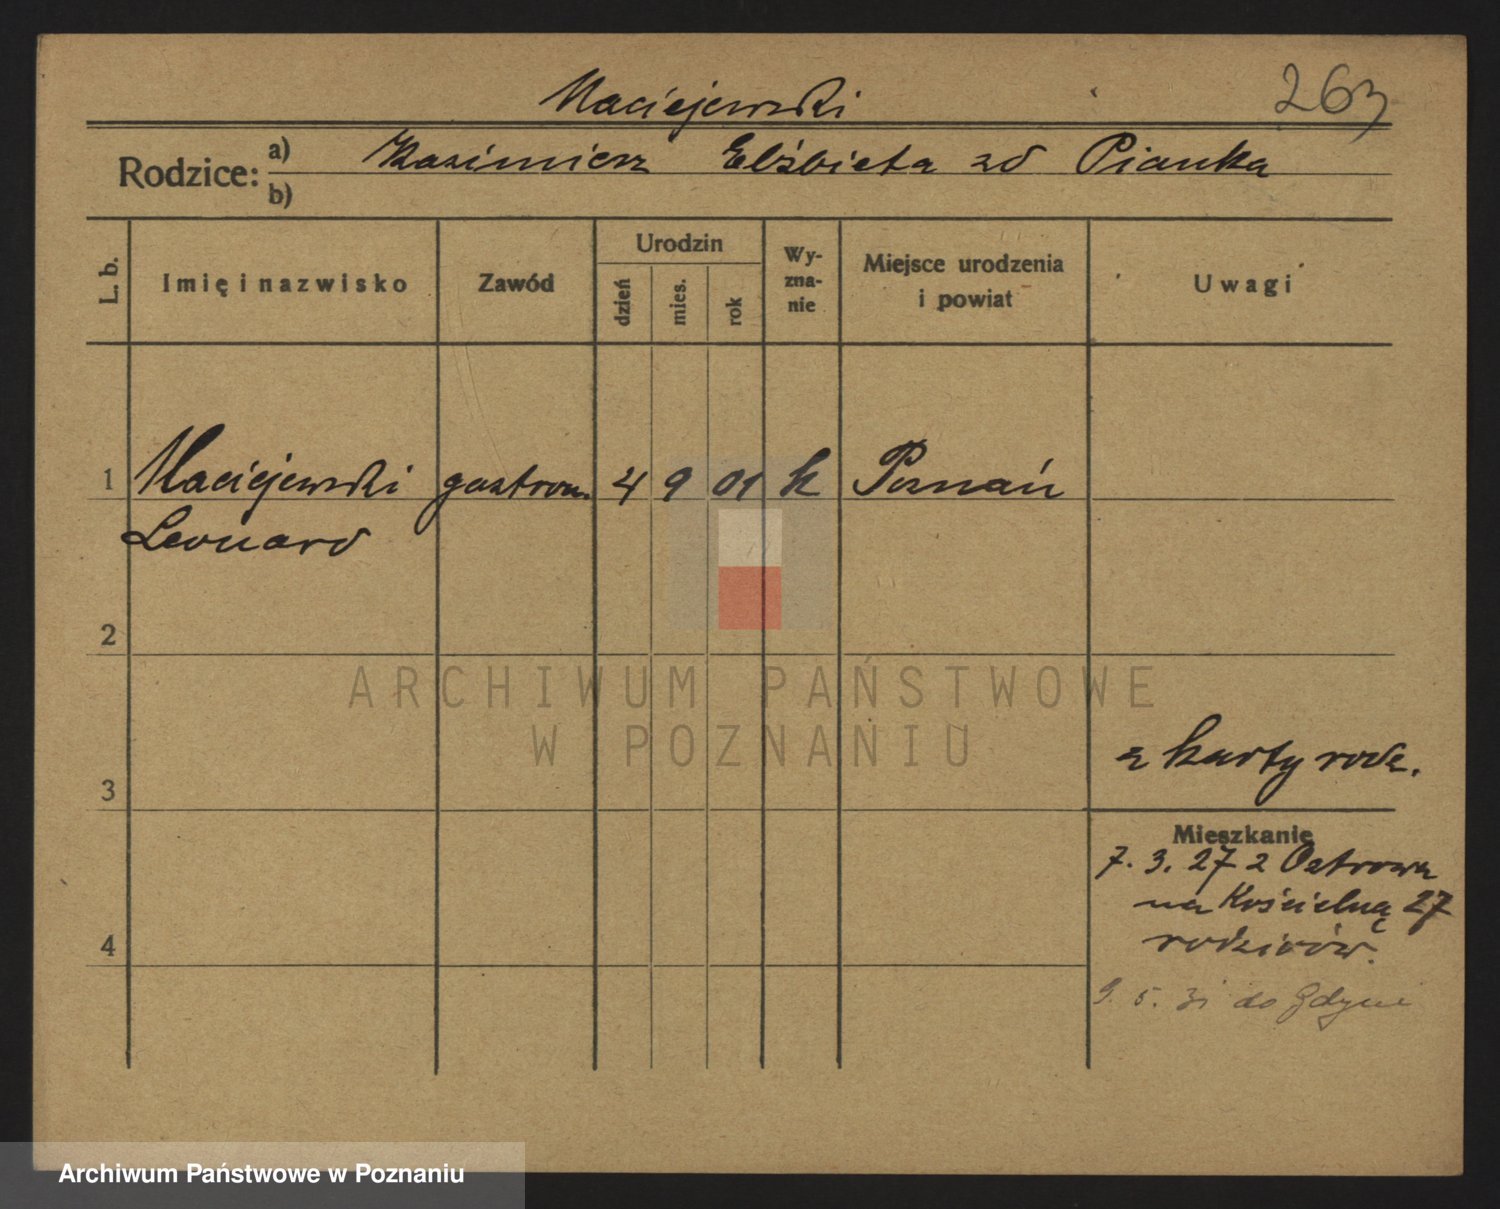 Maciejewski
263
Rodzice: a) Kazimierz Elżbieta zd Pianka
b)
L. b.
Imię i nazwisko
Zawód
Urodzin
dzień
mies.
rok
Wy-
zna-
nie
Miejsce urodzenia
i powiat
Uwagi
1 Maciejewski gastron. 4 9 01 k Poznań
Leonard
2
ARCHIWUM PAŃSTWOWE
W POZNANIU
z karty rodz.
3
Mieszkanie
7. 3. 27 z Ostrowa
na Kościelną 27
rodziców.
4
9. 5. 31 do Gdyni
Archiwum Państwowe w Poznaniu